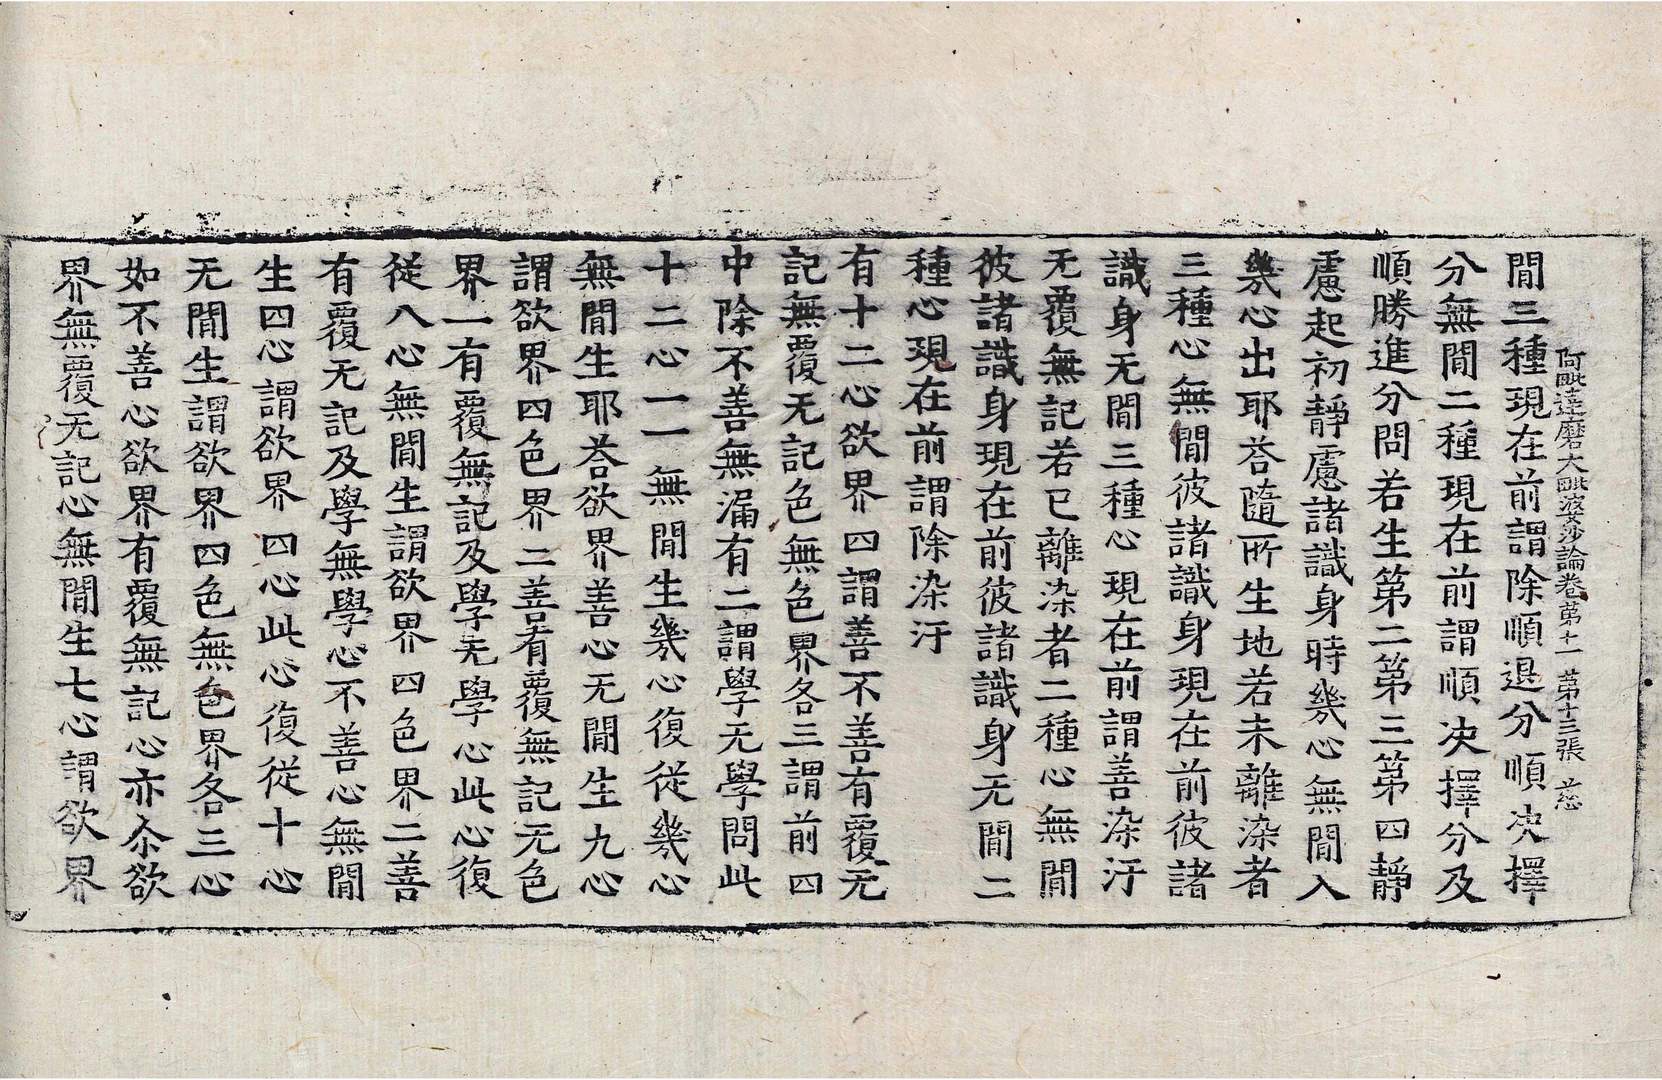 阿毗達磨大毗婆沙論卷第十一　第十三張　慈
閒三種現在前謂除順退分順决擇
分無閒二種現在前謂順决擇分及
順勝進分問若生第二第三第四靜
慮起初靜慮諸識身時幾心無閒入
幾心出耶荅隨所生地若未離染者
三種心無閒彼諸識身現在前彼諸
識身无閒三種心現在前謂善染汙
无覆無記若已離染者二種心無閒
彼諸識身現在前彼諸識身无閒二
種心現在前謂除染汙
有十二心欲界四謂善不善有覆无
記無覆无記色無色界各三謂前四
中除不善無漏有二謂學无學問此
十二心一一無閒生幾心復從幾心
無閒生耶荅欲界善心无閒生九心
謂欲界四色界二善有覆無記无色
界一有覆無記及學无學心此心復
從八心無閒生謂欲界四色界二善
有覆无記及學無學心不善心無閒
生四心謂欲界四心此心復從十心
无閒生謂欲界四色無色界各三心
如不善心欲界有覆無記心亦尒欲
界無覆无記心無閒生七心謂欲界